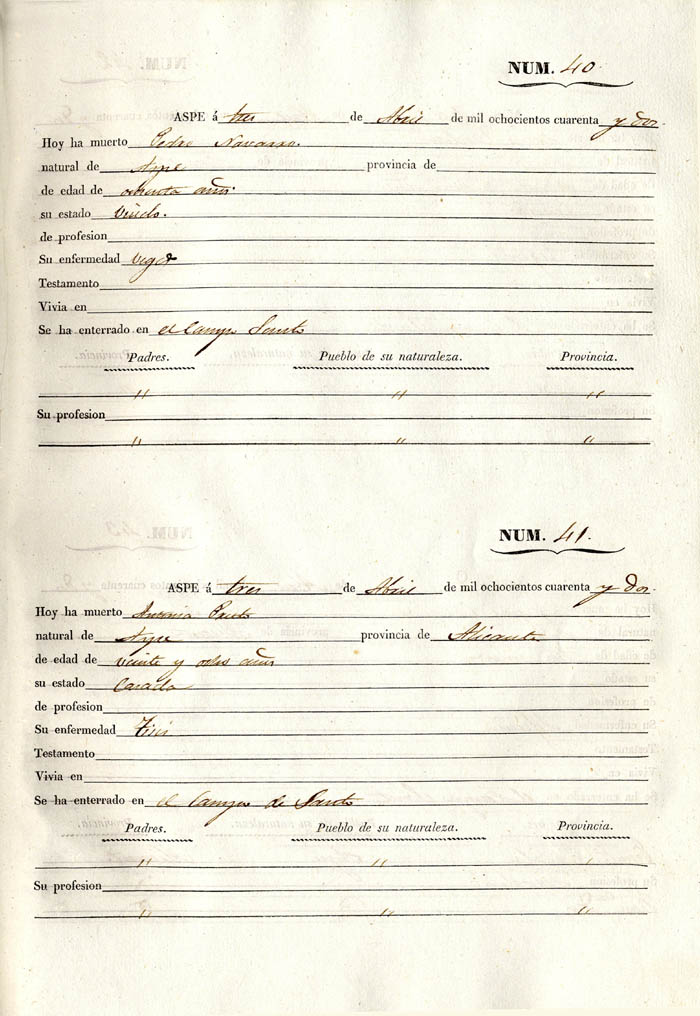 NUM. 40.
ASPE á tres de Abril de mil ochocientos cuarenta y dos.
Hoy ha muerto Pedro Navarro.
natural de Aspe provincia de
de edad de ochenta años.
su estado Viudo.
de profesion
Su enfermedad Veges
Testamento
Vivia en
Se ha enterrado en el Campo Santo
Padres. Pueblo de su naturaleza. Provincia.
" " "
Su profesion
" " "
NUM. 41.
ASPE á tres de Abril de mil ochocientos cuarenta y dos.
Hoy ha muerto Antonia
natural de Aspe provincia de Alicante
de edad de veinte y ocho años
su estado Casada
de profesion
Su enfermedad Tisis
Testamento
Vivia en
Se ha enterrado en el Campo de Santo
Padres. Pueblo de su naturaleza. Provincia.
" " "
Su profesion
" " "